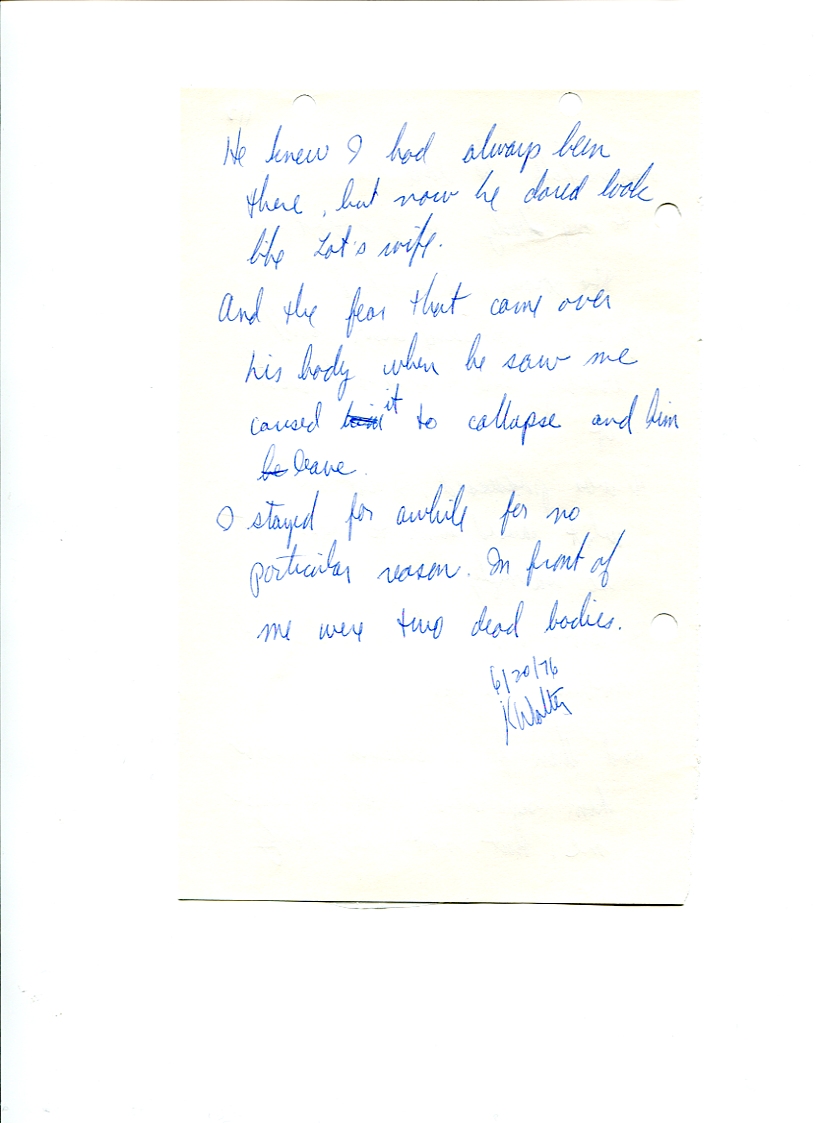 He knew I had always been
there, but now he dared look
like Lot's wife.
And the fear that came over
his body when he saw me
caused ~~him~~ it to collapse and him
~~be~~ leave.
I stayed for awhile for no
particular reason. In front of
me were two dead bodies.
6/20/76
KWalter